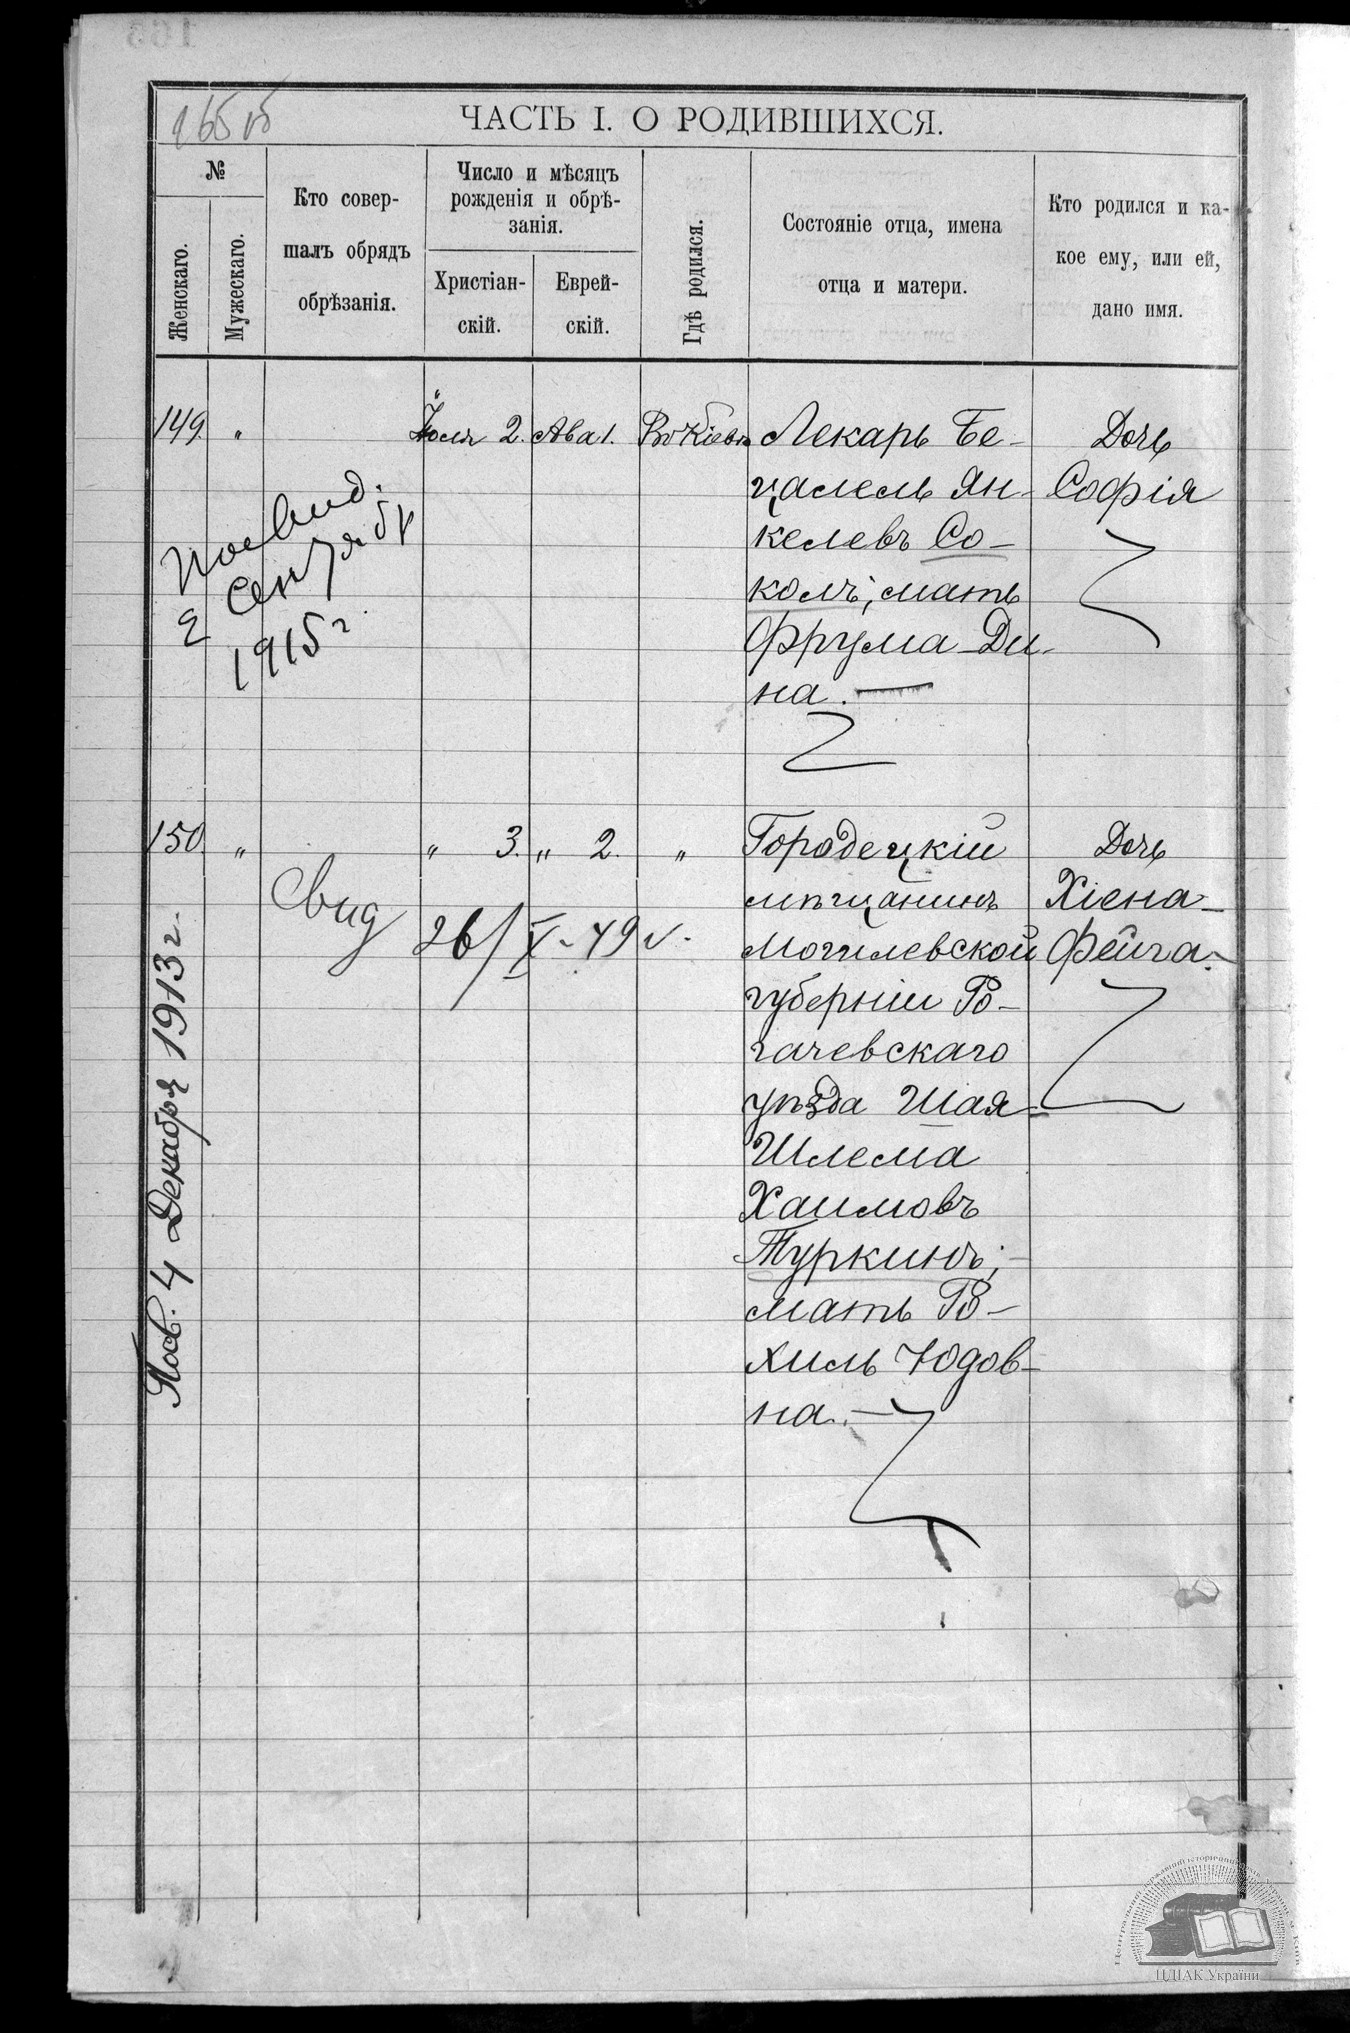 165 об
ЧАСТЬ I. О РОДИВШИХСЯ.
№
Женскаго.
Мужескаго.
Кто совер-
шалъ обрядъ
обрѣзанія.
Число и мѣсяцъ
рожденія и обрѣ-
занія.
Христіан-
скій.
Еврей-
скій.
Гдѣ родился.
Состояніе отца, имена
отца и матери.
Кто родился и ка-
кое ему, или ей,
дано имя.
149. „ Іюля 2. Ава 1. Въ Кіевѣ
Лекарь Бе-
цалель Ян-
келевъ Со-
колъ; мать
Фрума-Ди-
на. —
Дочь
Софія
2 Сентября
1915 г.
150. „ „ 3. „ 2. „
Городецкій
мѣщанинъ
Могилевской
губерніи Ро-
гачевскаго
уѣзда Шая-
Шлема
Хаимовъ
Туркинъ;
мать Ро-
хиль Юдов-
на. —
Дочь
Хіена-
Фейга.
Свид 26/X-49 г.
Пов. 4 Декабря 1913 г.
ЦДІАК України